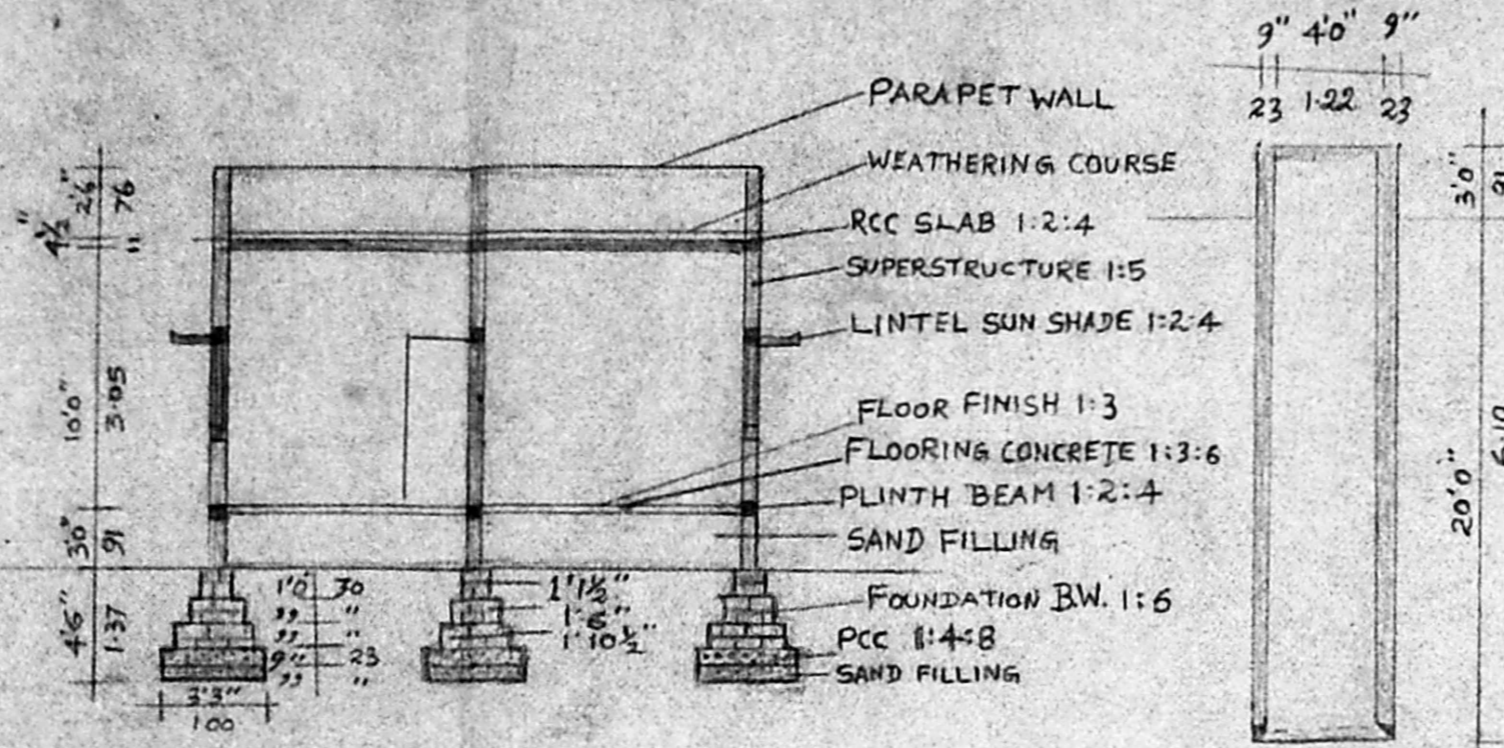 9" 4'0" 9"
23 1·22 23
PARAPET WALL
WEATHERING COURSE
RCC SLAB 1:2:4
SUPERSTRUCTURE 1:5
LINTEL SUN SHADE 1:2:4
FLOOR FINISH 1:3
FLOORING CONCRETE 1:3:6
PLINTH BEAM 1:2:4
SAND FILLING
FOUNDATION B.W. 1:6
PCC 1:4:8
SAND FILLING
2'6"
76
4½"
"
10'0"
3·05
3'0"
91
4'6"
1·37
1'0" 30
" "
" "
9" 23
" "
3'3"
1 00
1'1½"
1'6"
1'10½"
3'0"
20'0"
6·10